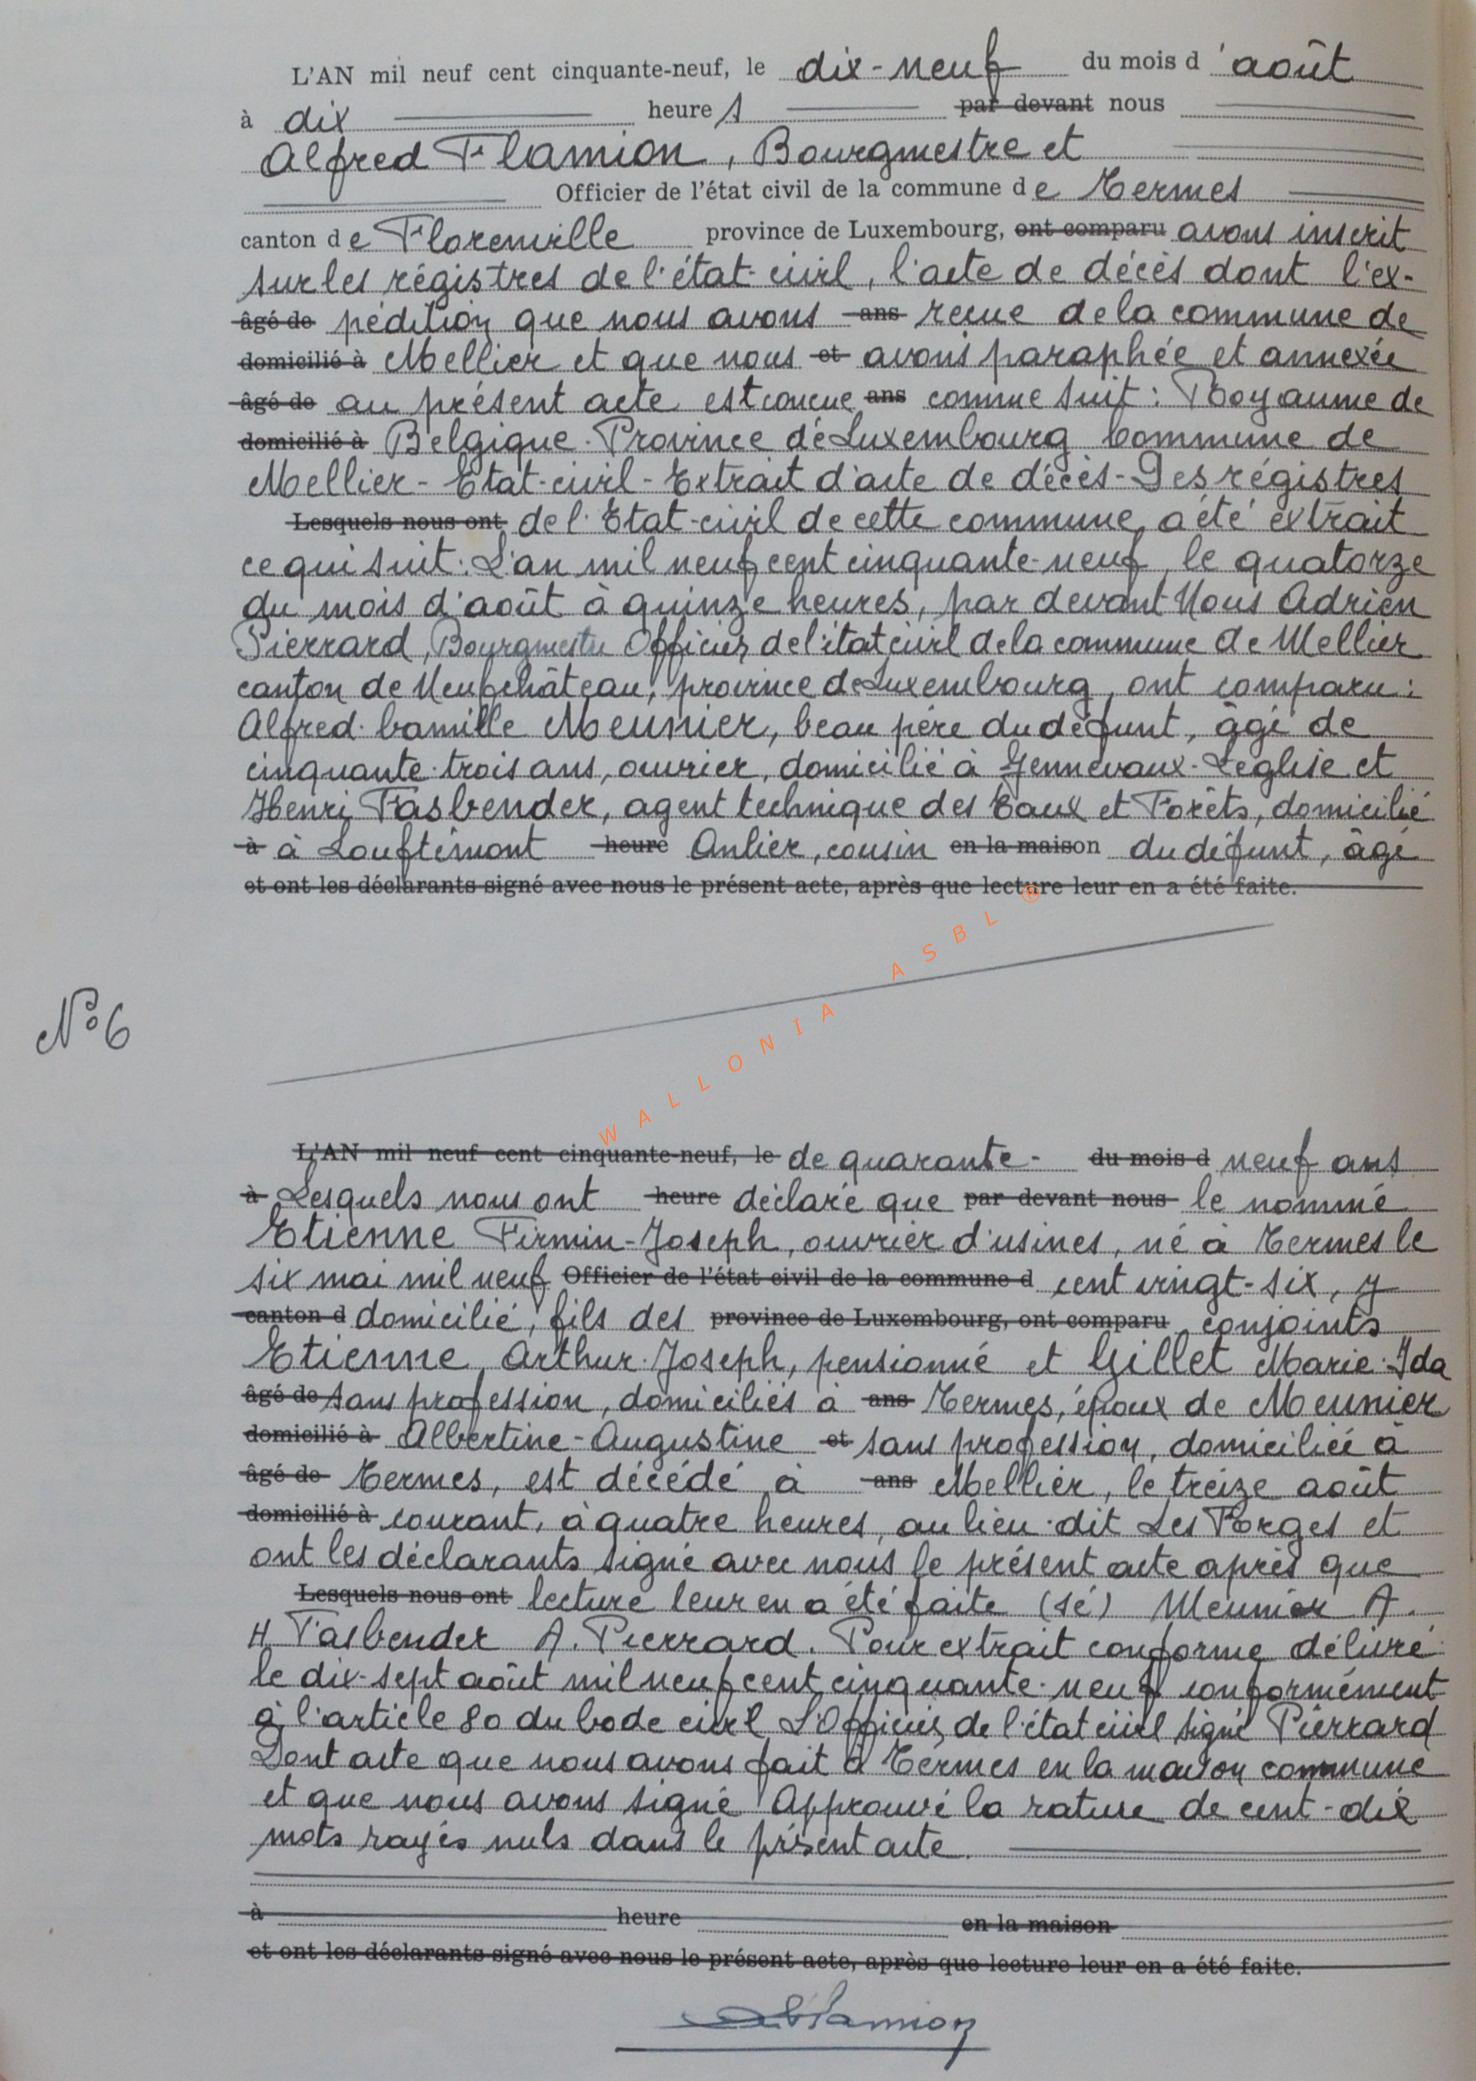 L'AN mil neuf cent cinquante-neuf, le dix-neuf du mois d'août
à dix heures par devant nous
Alfred Flamion, Bourgmestre et
Officier de l'état civil de la commune de Termes
canton de Florenville province de Luxembourg, ont comparu avons inscrit
sur les régistres de l'état-civil, l'acte de décès dont l'ex-
âgé de pédition que nous avons ans recue de la commune de
domicilié à Mellier et que nous et avons paraphée et annexée
âgé de au présent acte est concue ans comme suit: Royaume de
domicilié à Belgique. Province de Luxembourg Commune de
Mellier - Etat-civil - Extrait d'acte de décès - Des régistres
Lesquels nous ont de l'Etat-civil de cette commune, a été extrait
ce qui suit: L'an mil neuf cent cinquante-neuf, le quatorze
du mois d'août à quinze heures, par devant Nous Adrien
Pierrard, Bourgmestre Officier de l'état civil de la commune de Mellier
canton de Neufchâteau, province de Luxembourg, ont comparu:
Alfred-Camille Meunier, beau père du défunt, âgé de
cinquante-trois ans, ouvrier, domicilié à Gennevaux-Léglise et
Henri Fasbender, agent technique des Eaux et Forêts, domicilié
à à Louftémont heure Anlier, cousin en la maison du défunt, âgé
et ont les déclarants signé avec nous le présent acte, après que lecture leur en a été faite.
WALLONIA ASBL ®
N° 6
L'AN mil neuf cent cinquante-neuf, le de quarante- du mois d neuf ans
à Lesquels nous ont heure déclaré que par devant nous le nommé
Etienne Firmin-Joseph, ouvrier d'usines, né à Termes le
six mai mil neuf Officier de l'état civil de la commune d cent vingt-six, y
canton d domicilié, fils des province de Luxembourg, ont comparu conjoints
Etienne Arthur-Joseph, pensionné et Gillet Marie-Ida
âgé de sans profession, domiciliés à ans Termes, époux de Meunier
domicilié à Albertine-Augustine et sans profession, domiciliée à
âgé de Termes, est décédé à ans Mellier, le treize août
domicilié à courant, à quatre heures, au lieu-dit Les Forges et
ont les déclarants signé avec nous le présent acte après que
Lesquels nous ont lecture leur en a été faite (sé) Meunier A.
H Fasbender A. Pierrard. Pour extrait conforme délivré
le dix-sept août mil neuf cent cinquante-neuf conformément
à l'article 80 du Code civil L'Officier de l'état civil signé Pierrard
Dont acte que nous avons fait à Termes en la maison commune
et que nous avons signé Approuvé la rature de cent-dix
mots rayés nuls dans le présent acte.
à heure en la maison
et ont les déclarants signé avec nous le présent acte, après que lecture leur en a été faite.
AFlamion